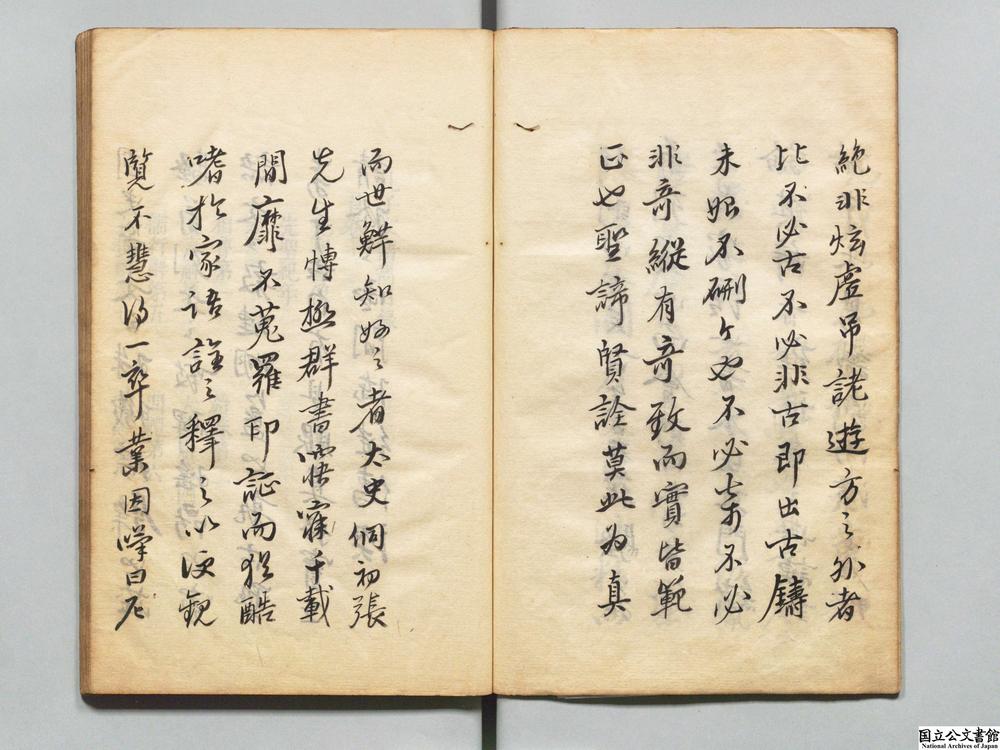 絶非炫虛吊詭遊方之外者
比不必古不必非古即出古鑄
未始不硎々也不必奇不必
非奇縱有奇致而實皆範
正也聖諦賢詮莫此为真
而世鮮知好之者太史侗初張
先生博極群書寤寐千載
間靡不蒐羅印証而猶酷
嗜於家語註之釋之以便観
覧不慧得一卒業因嘆曰尼
国立公文書館
National Archives of Japan